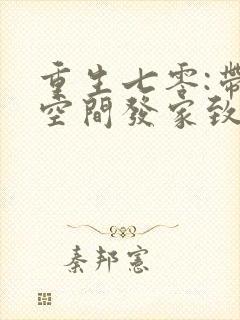 重生七零:帶
空間發家致
秦邦憲